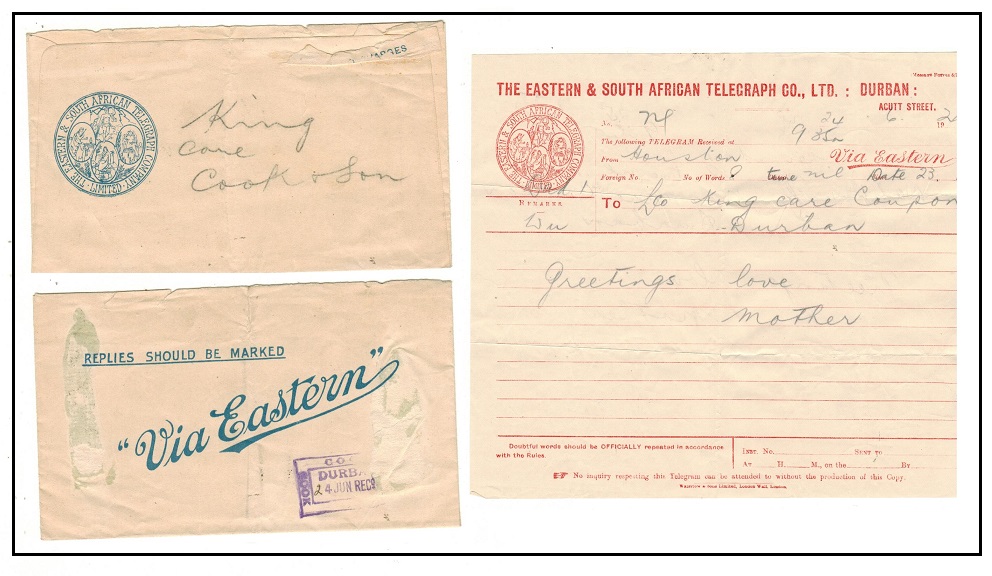 CHARGES
THE EASTERN & SOUTH AFRICAN TELEGRAPH COMPANY
LIMITED
King
care
Cook & Son
REPLIES SHOULD BE MARKED
"Via Eastern"
COOK
DURBA
24 JUN REC
THE EASTERN & SOUTH AFRICAN TELEGRAPH CO., LTD. : DURBAN :
ACUTT STREET.
THE EASTERN & SOUTH AFRICAN TELEGRAPH COMPANY
LIMITED
No.
24 6 19 2
The following TELEGRAM Received at
From Houston
Via Eastern
Foreign No No of Words 8 time Date 23
REMARKS
To Lco King care Coupon
Durban
Greetings love
Mother
Doubtful words should be OFFICIALLY repeated in accordance
with the Rules.
INST. No. SENT TO
AT H. M., on the BY
No inquiry respecting this Telegram can be attended to without the production of this Copy.